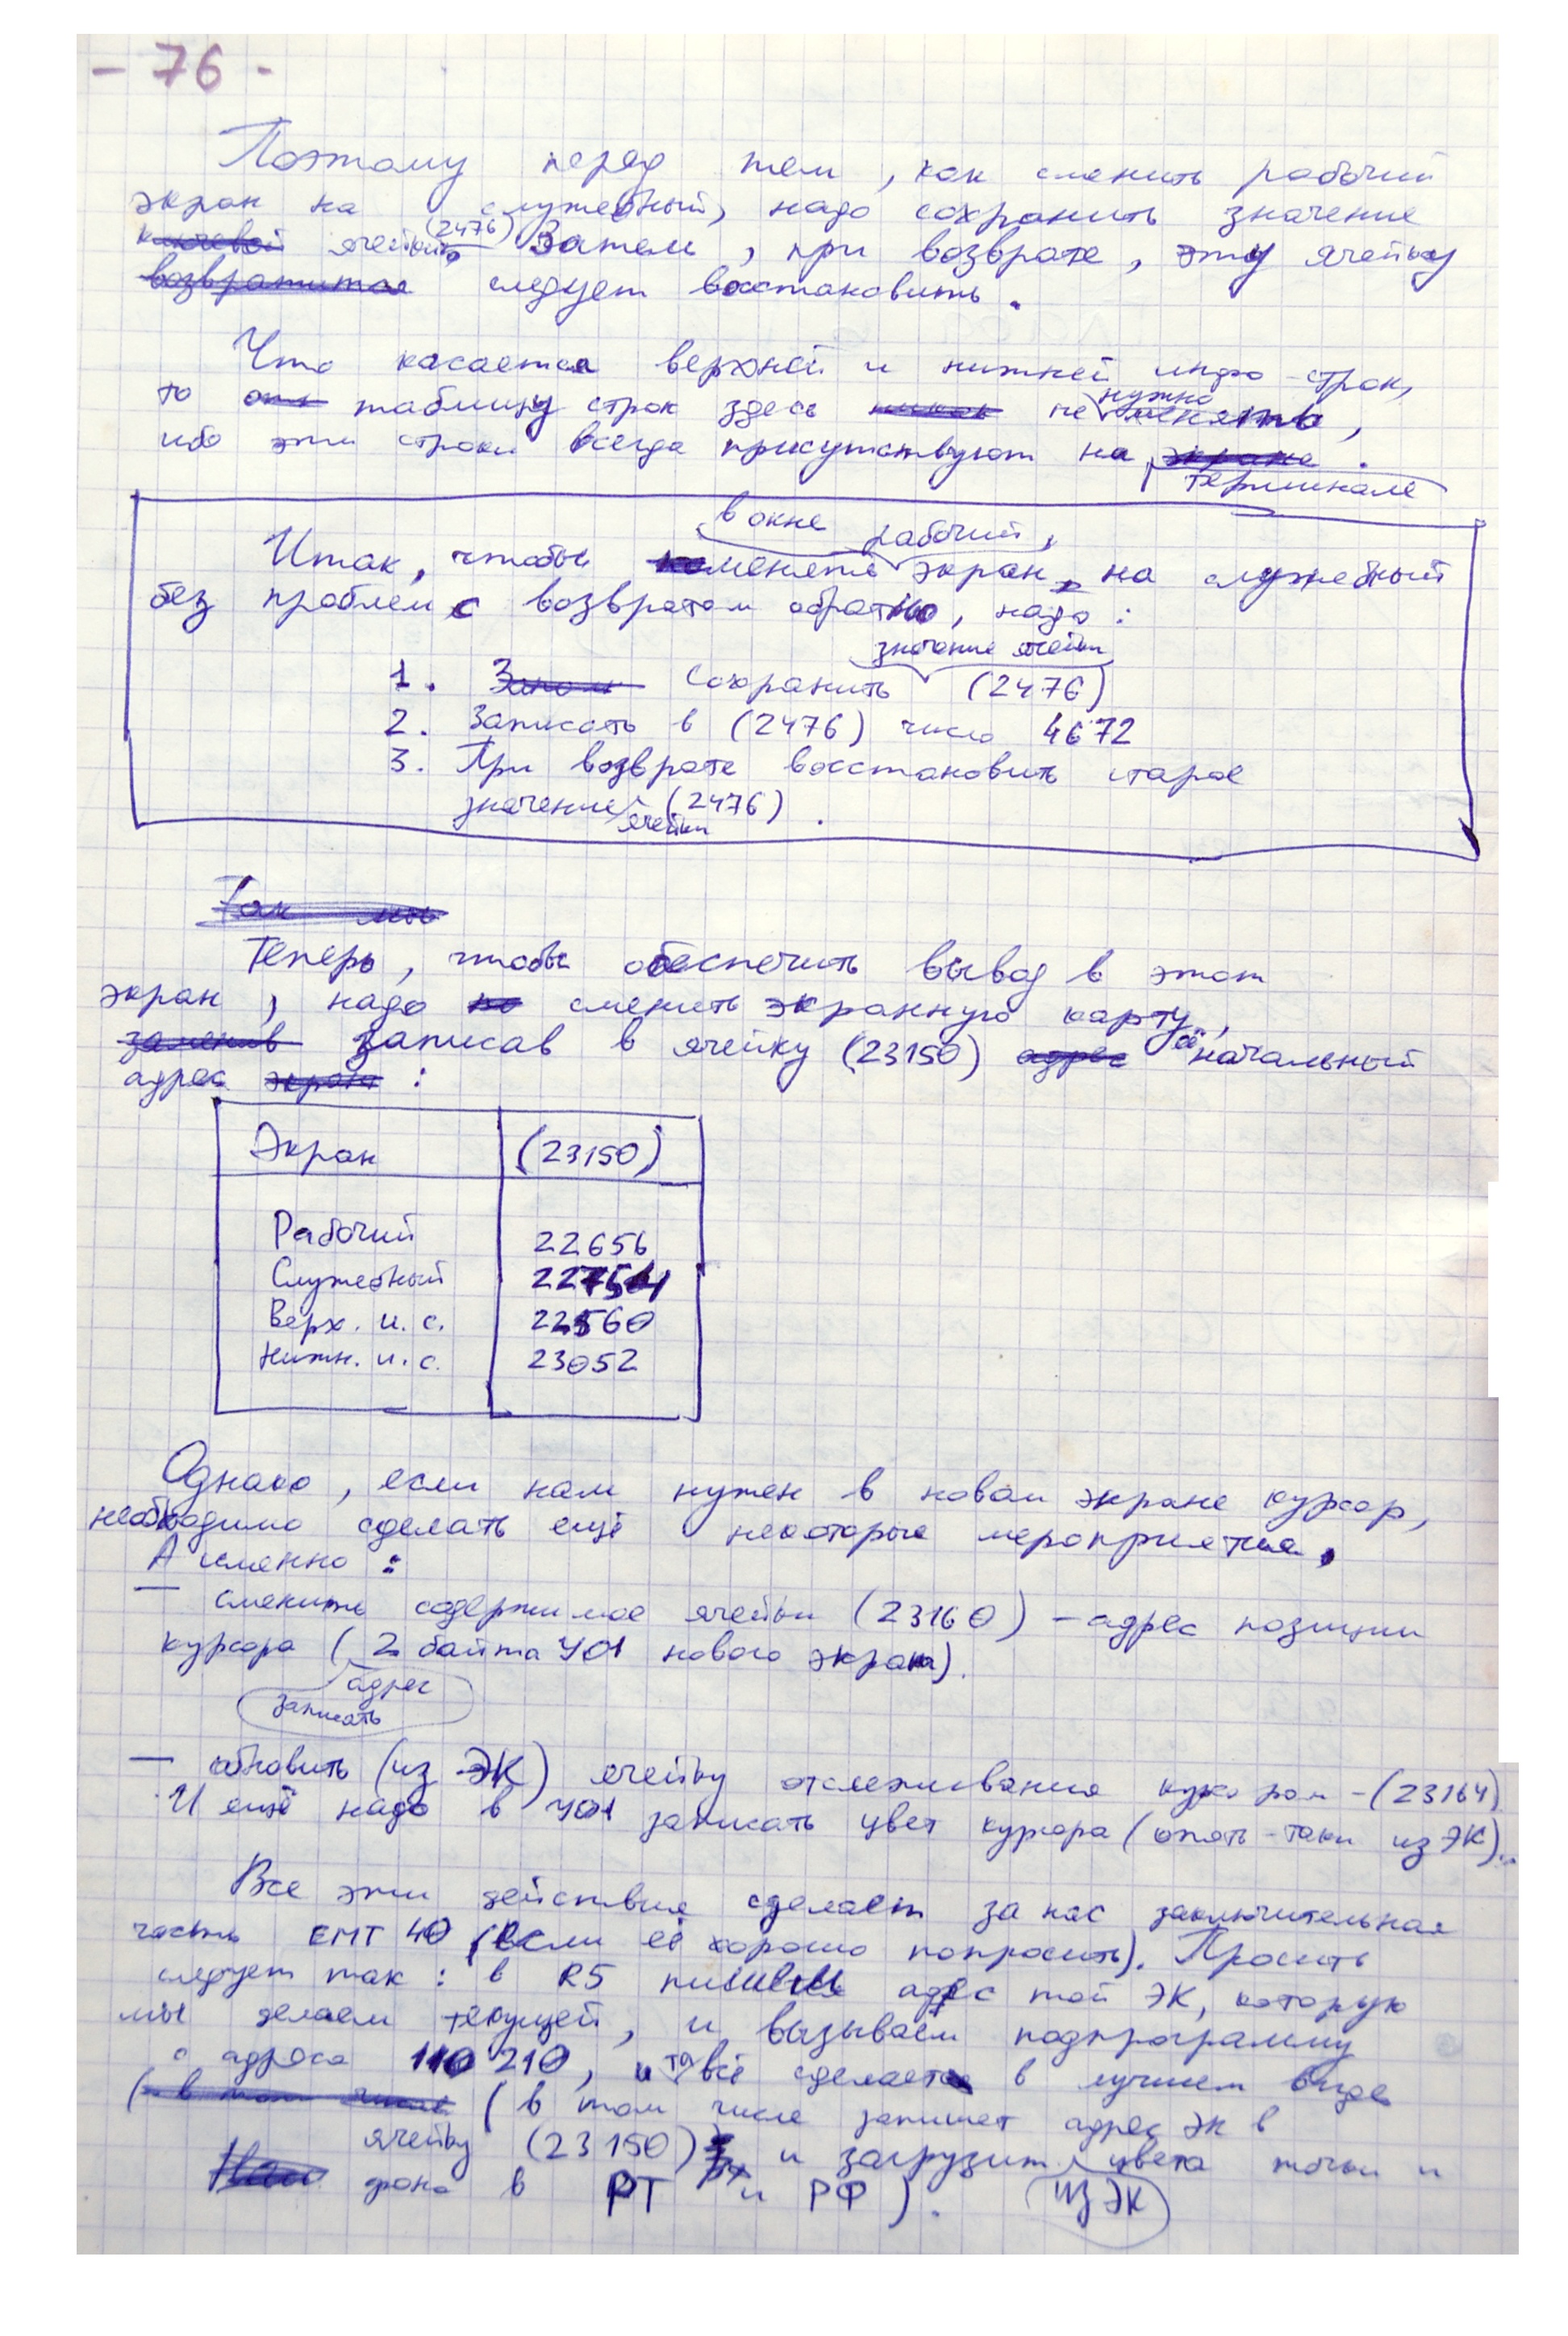 - 76 -
Поэтому перед тем, как сменить рабочий
экран на служебный, надо сохранить значение
ключевой ячейки (2476). Затем, при возврате, эту ячейку
возвратится следует восстановить.
Что касается верхней и нижней инфо-строк,
то таблицу строк здесь не нужно менять,
ибо эти строки всегда присутствуют на экране терминале.
Итак, чтобы менять в окне рабочий экран на служебный
без проблем с возвратом обратно, надо:
1. Сохранить значение ячейки (2476)
2. Записать в (2476) число 4672
3. При возврате восстановить старое
значение ячейки (2476).
Так мы
Теперь, чтобы обеспечить вывод в этот
экран, надо сменить экранную карту,
заменив записав в ячейку (23150) адрес её начальный
адрес экрана:
Экран (23150)
Рабочий 22656
Служебный 22754
Верх. и. с. 22560
Нижн. и. с. 23052
Однако, если нам нужен в новом экране курсор,
необходимо сделать ещё некоторые мероприятия.
А именно:
— сменить содержимое ячейки (23160) - адрес позиции
курсора (2 байта УО1 нового экрана).
адрес
записать
— обновить (из ЭК) ячейку отслеживания курсора - (23164)
И ещё надо в УО1 записать цвет курсора (опять-таки из ЭК)..
Все эти действия сделает за нас заключительная
часть EMT 40 (если её хорошо попросить). Просить
следует так: в R5 пишем адрес той ЭК, которую
мы делаем текущей, и вызываем подпрограмму
с адреса 110210, и та всё сделает в лучшем виде
(в том числе (в том числе запишет адрес ЭК в
ячейку (23150) и загрузит из ЭК цвета точки и
фона в РТ и РФ).